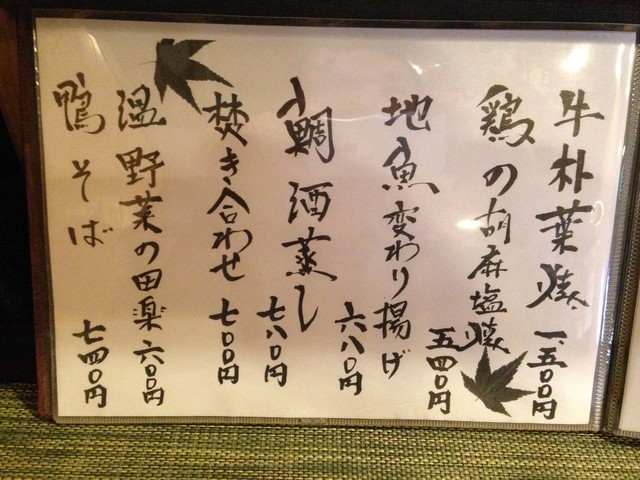 牛朴葉焼 一、五〇〇円
鶏の胡麻塩焼 五四〇円
地魚変わり揚げ 六八〇円
小鯛酒蒸し 七八〇円
焚き合わせ 七〇〇円
温野菜の田楽 六〇〇円
鴨そば 七四〇円